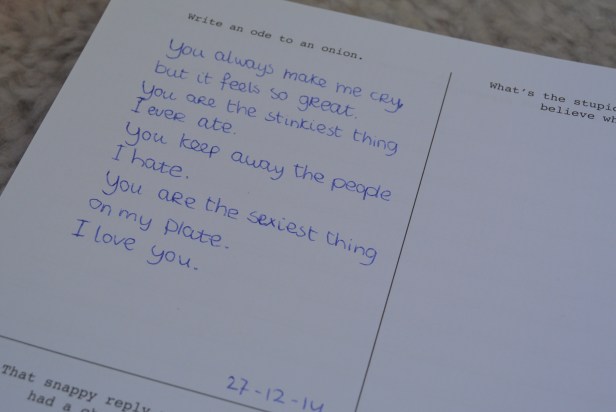 Write an ode to an onion.
You always make me cry,
but it feels so great.
You are the stinkiest thing
I ever ate.
You keep away the people
I hate.
You are the sexiest thing
on my plate.
I love you.
27-12-14
What's the
believe
That snappy reply
had a